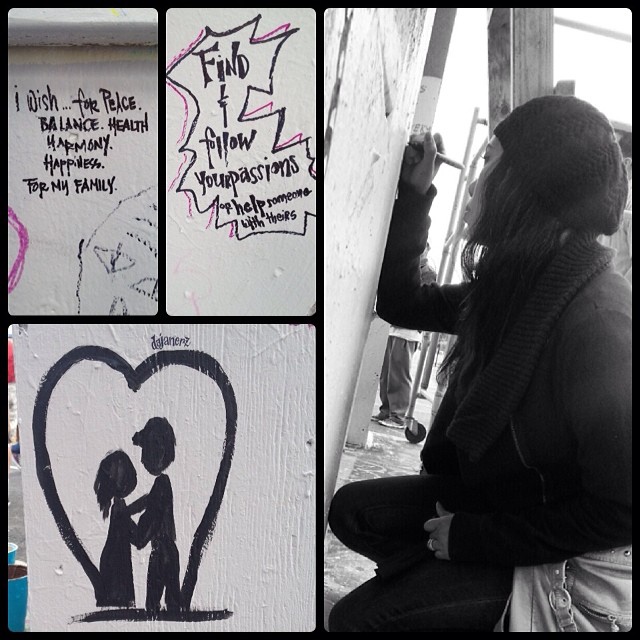 i wish... for PEACE.
BALANCE. HEALTH
HARMONY.
HAPPINESS.
FOR MY FAMILY.
FIND
&
follow
your passions
or help someone
with theirs
dajanerz